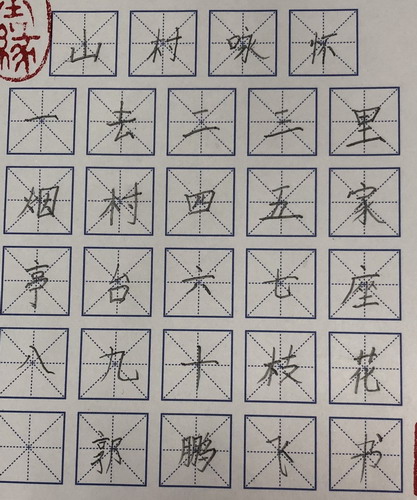 山村咏怀
一去二三里
烟村四五家
亭台六七座
八九十枝花
郭鹏飞书